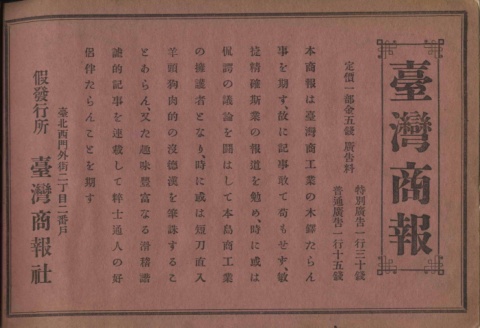 臺灣商報
定價一部金五錢 廣告料
特別廣告一行三十錢
普通廣告一行十五錢
本商報は臺灣商工業の木鐸たらん
事を期す、故に記事敢て苟もせず、敏
捷精確斯業の報道を勉め、時に或は
侃諤の議論を鬪はして本島商工業
の擁護者となり、時に或は短刀直入
羊頭狗肉的の沒德漢を筆誅するこ
とあらん、又た趣味豐富なる滑稽諧
謔的記事を連載して粹士通人の好
侶伴たらんことを期す
臺北西門外街二丁目二番戶
假發行所 臺灣商報社